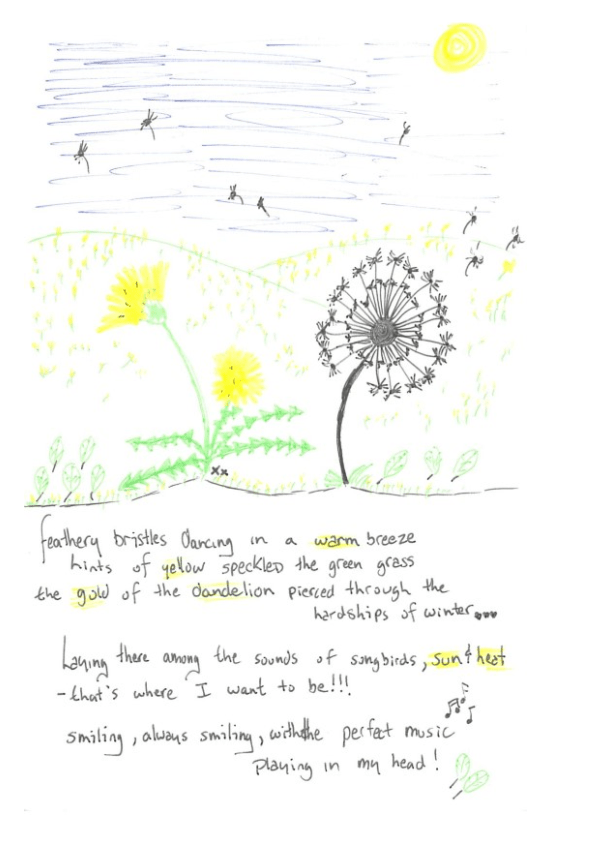 feathery bristles dancing in a warm breeze
hints of yellow speckled the green grass
the gold of the dandelion pierced through the
hardships of winter...
Laying there among the sounds of songbirds, sun & heat
- that's where I want to be!!!
smiling, always smiling, with the perfect music
playing in my head!
xx